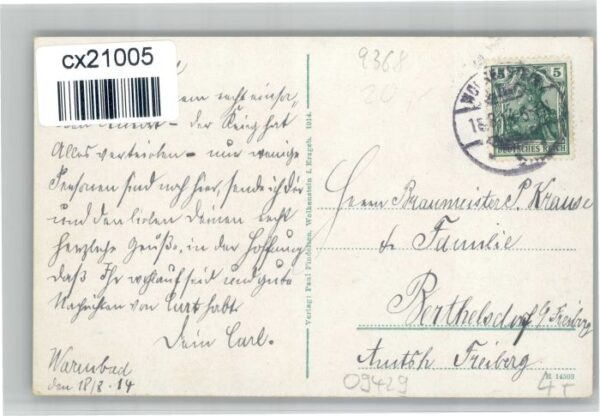 cx21005
9368
20,-
dem recht einsa-
der Krieg hat
Alles vertrieben - nur wenige
Personen sind noch hier, sende ich Dir
und den lieben Deinen recht
herzliche Grüße, in der Hoffnung
daß Ihr wohlauf seid und gute
Nachrichten von Curt habt.
Dein Carl.
Warmbad
den 18/8. 14
Verlag: Paul Findeisen, Wolkenstein i. Erzgeb. 1914.
5
DEUTSCHES REICH
Herrn Braumeister P. Krause
& Familie
Berthelsdorf b/ Freiberg
Amtsh. Freiberg
09429
14503